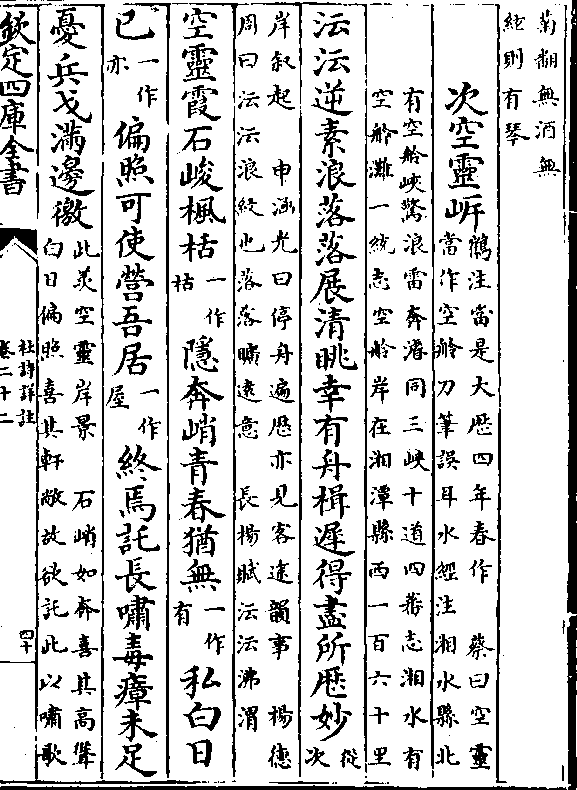 菊翻無酒無
絃則有琴
次空靈岸
鶴注當是大厯四年春作 蔡曰空靈
當作空舲刀筆誤耳水經注湘水縣北
有空舲峽驚浪雷奔濬同三峽十道四蕃志湘水有
空舲灘一統志空舲岸在湘潭縣西一百六十里
沄沄逆素浪落落展清眺幸有舟楫遲得盡所厯妙
從次
岸叙起 申涵光曰停舟遍厯亦見客途韻事 楊德
周曰沄沄浪紋也落落曠逺意 長楊賦沄沄沸渭
空靈霞石峻楓栝
一作
枯
隱奔峭青春猶無
一作
有
私白日
已
一作
亦
偏照可使營吾居
一作
屋
終焉託長嘯毒瘴未足
憂兵戈滿邊徼
此羙空靈岸景 石峭如奔喜其高聳
白日偏照喜其軒敞故欲託此以嘯歌
欽定四庫全書
杜詩詳註
卷二十二
四十